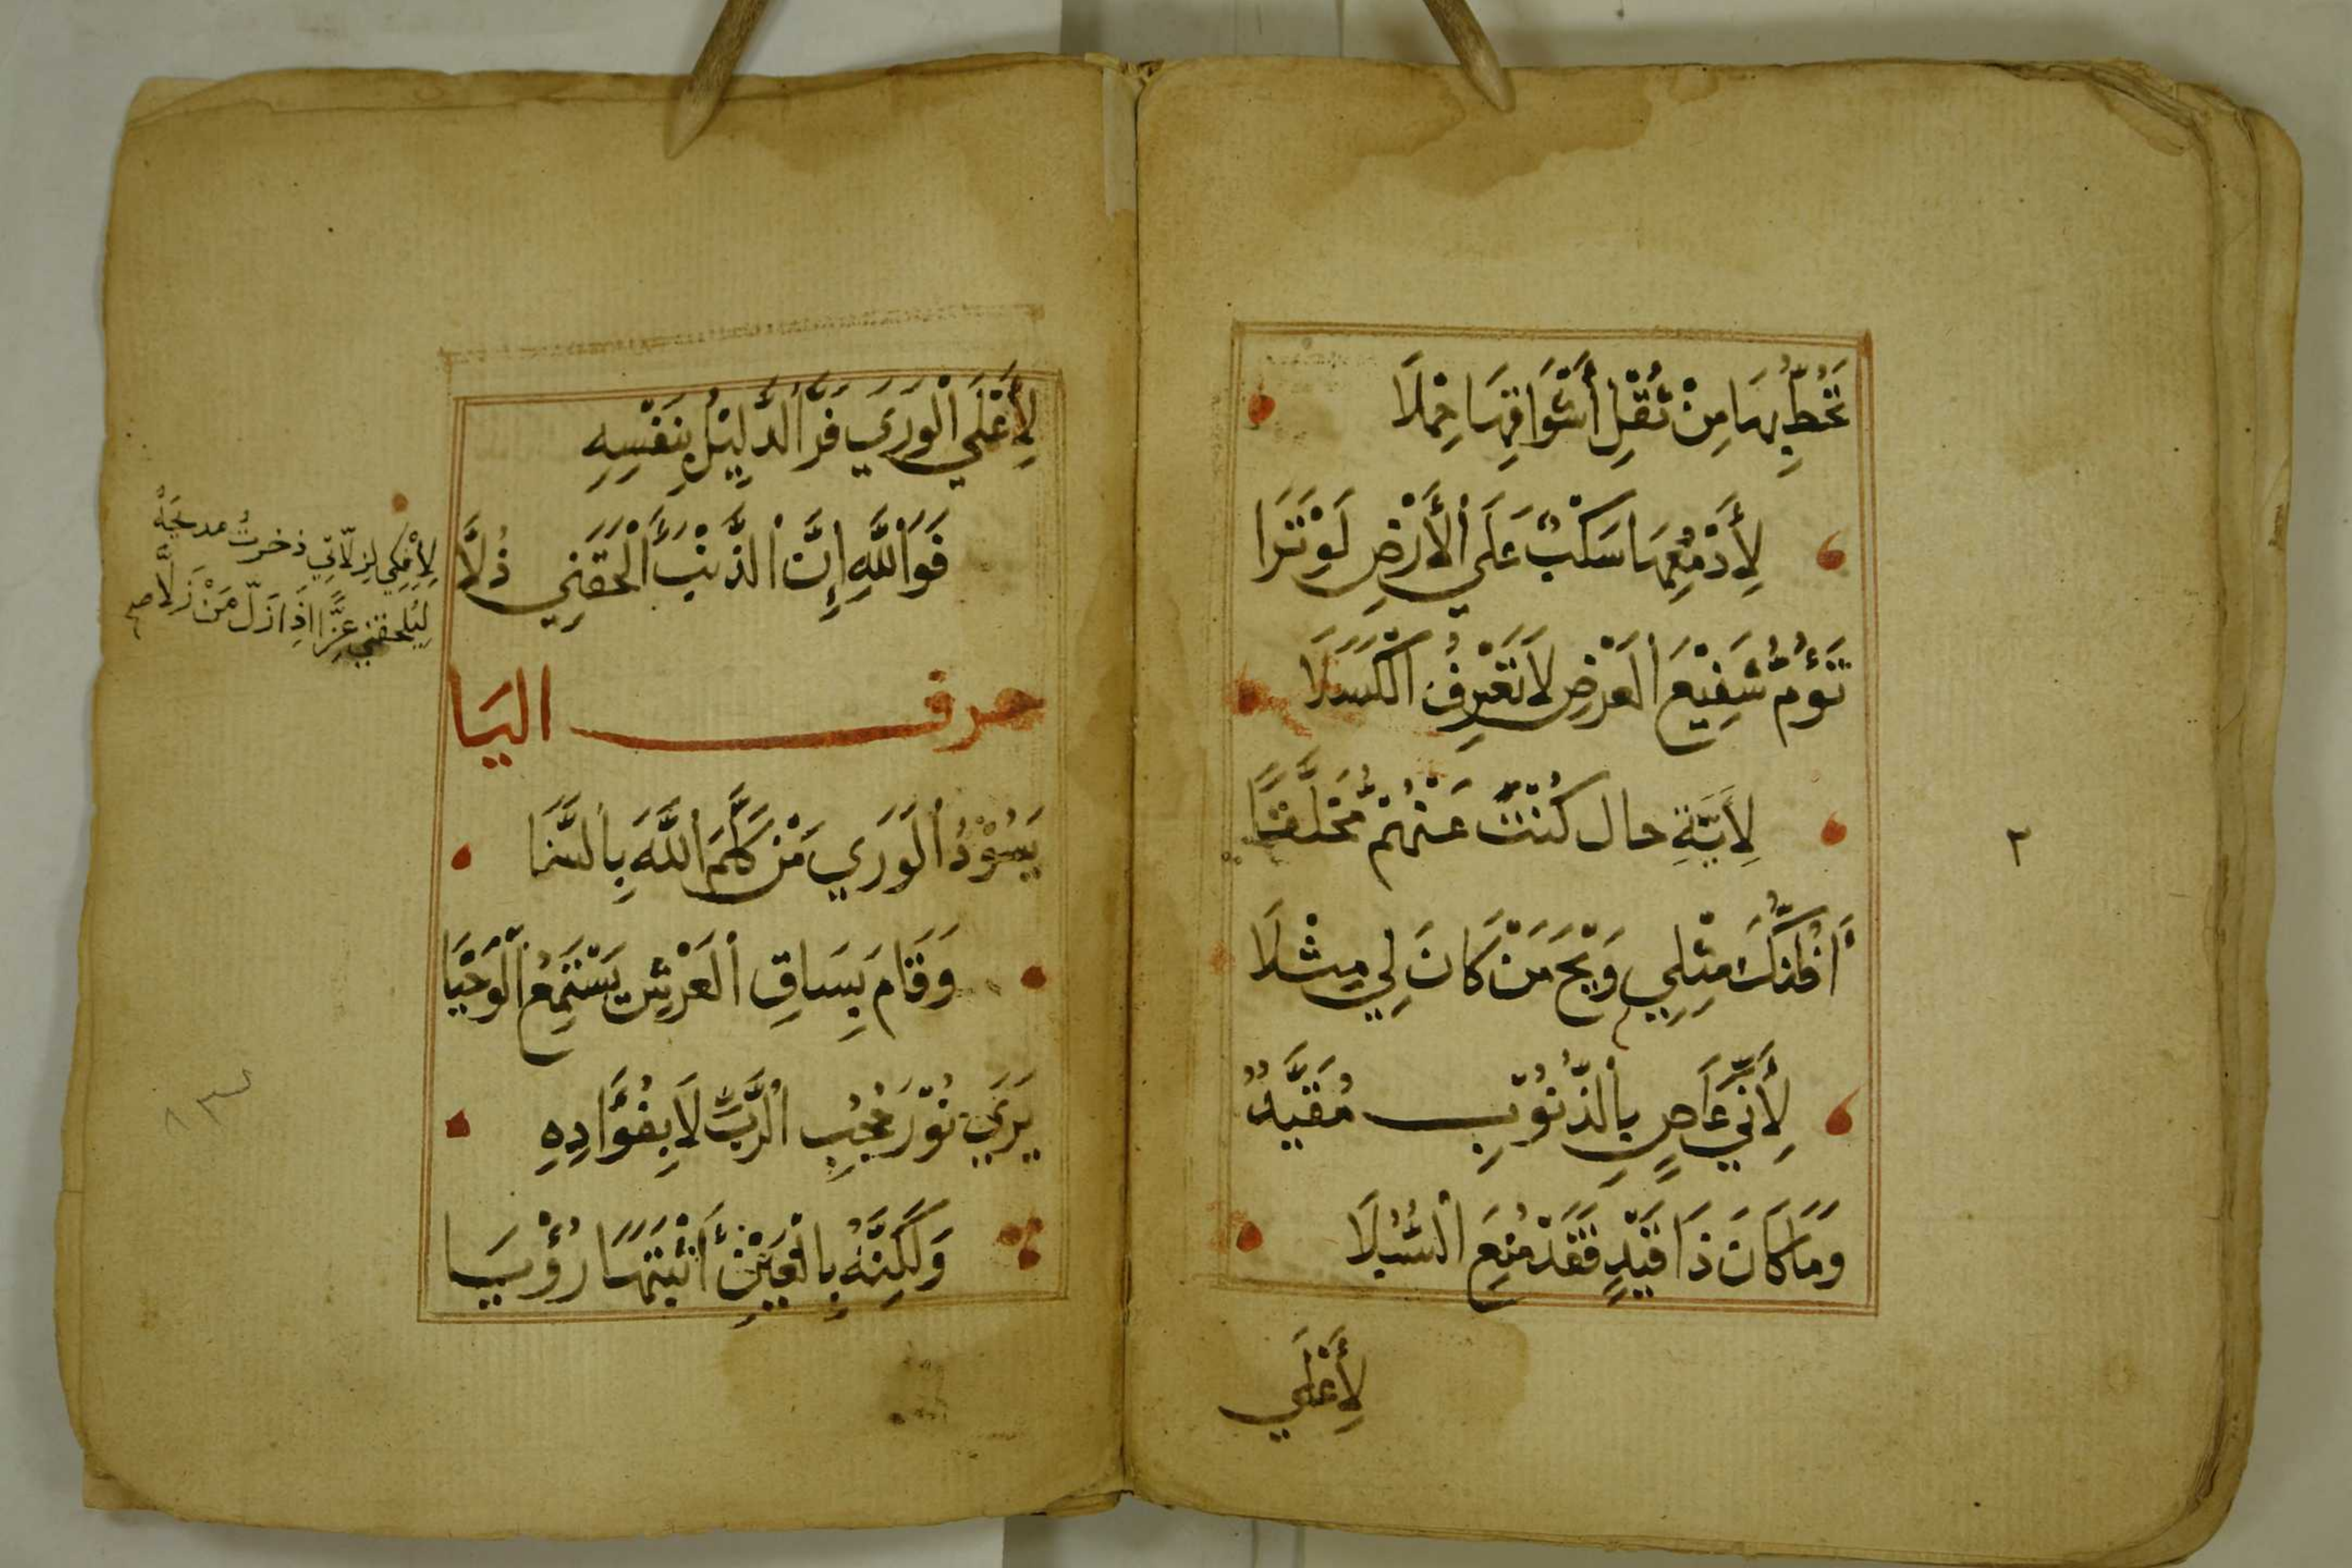 تَحُطُّ بِهَا مِنْ ثُقْلِ أَشْوَاقِهَا حِمْلَا
لِأَدْمُعِهَا سَكْبٌ عَلَى الْأَرْضِ لَوْ تَرَا
تَؤُمُّ شَفِيْعَ الْعَرْضِ لَا تَعْرِفُ الْكَسَلَا
لِأَيَّةِ حال كُنْتُ عَنْهُمْ مُخَلَّفًا
أَظُنُّكَ مِثْلِي وَيْحَ مَنْ كَانَ لِي مِثْلَا
لِأَنِّي عَاصٍ بِالذُّنُوْبِ مُقَيَّدٌ
وَمَا كَانَ ذَا قَيْدٍ فَقَدْ مُنِعَ السُّبُلَا
لِأَعْلَي
٣
لِأَعْلَي الْوَرَي فَرَّ الذَّلِيْلُ بِنَفْسِهِ
فَوَاللَّهِ إِنَّ الذَّنْبَ أَلْحَقَنِي ذُلَّا
لِأَفْكِي لِزلّاتِي ذخرتُ مديحَهُ
لِيُلحقني عِزًّا اذَا زَلَّ مَنْ زَلَّا صح
حرف اليَا
يَسُوْدُ الْوَرَي مَنْ كَلَّمَ اللَّهَ بِالسَّمَا
وَقَامَ بِسَاقِ الْعَرْشِ يَسْتَمِعُ الْوَحْيَا
يَرَي نُوْرَ حُجْبِ الرَّبِّ لَا بِفُؤَادِهِ
وَلَكِنَّهُ بِالْعَيْنِ أَثْبَتَهَا رُؤْيَا